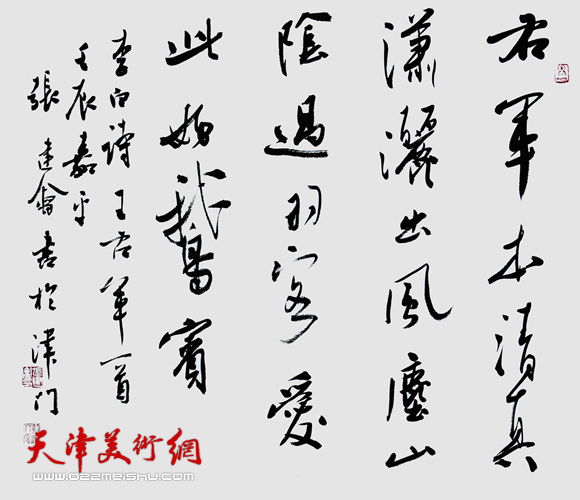 右軍本清真
瀟灑出風塵山
陰過羽客愛
此好鵝賓
李白詩王右軍一首
壬辰嘉平
張建會書於津門
天津美術網
www.022meishu.com